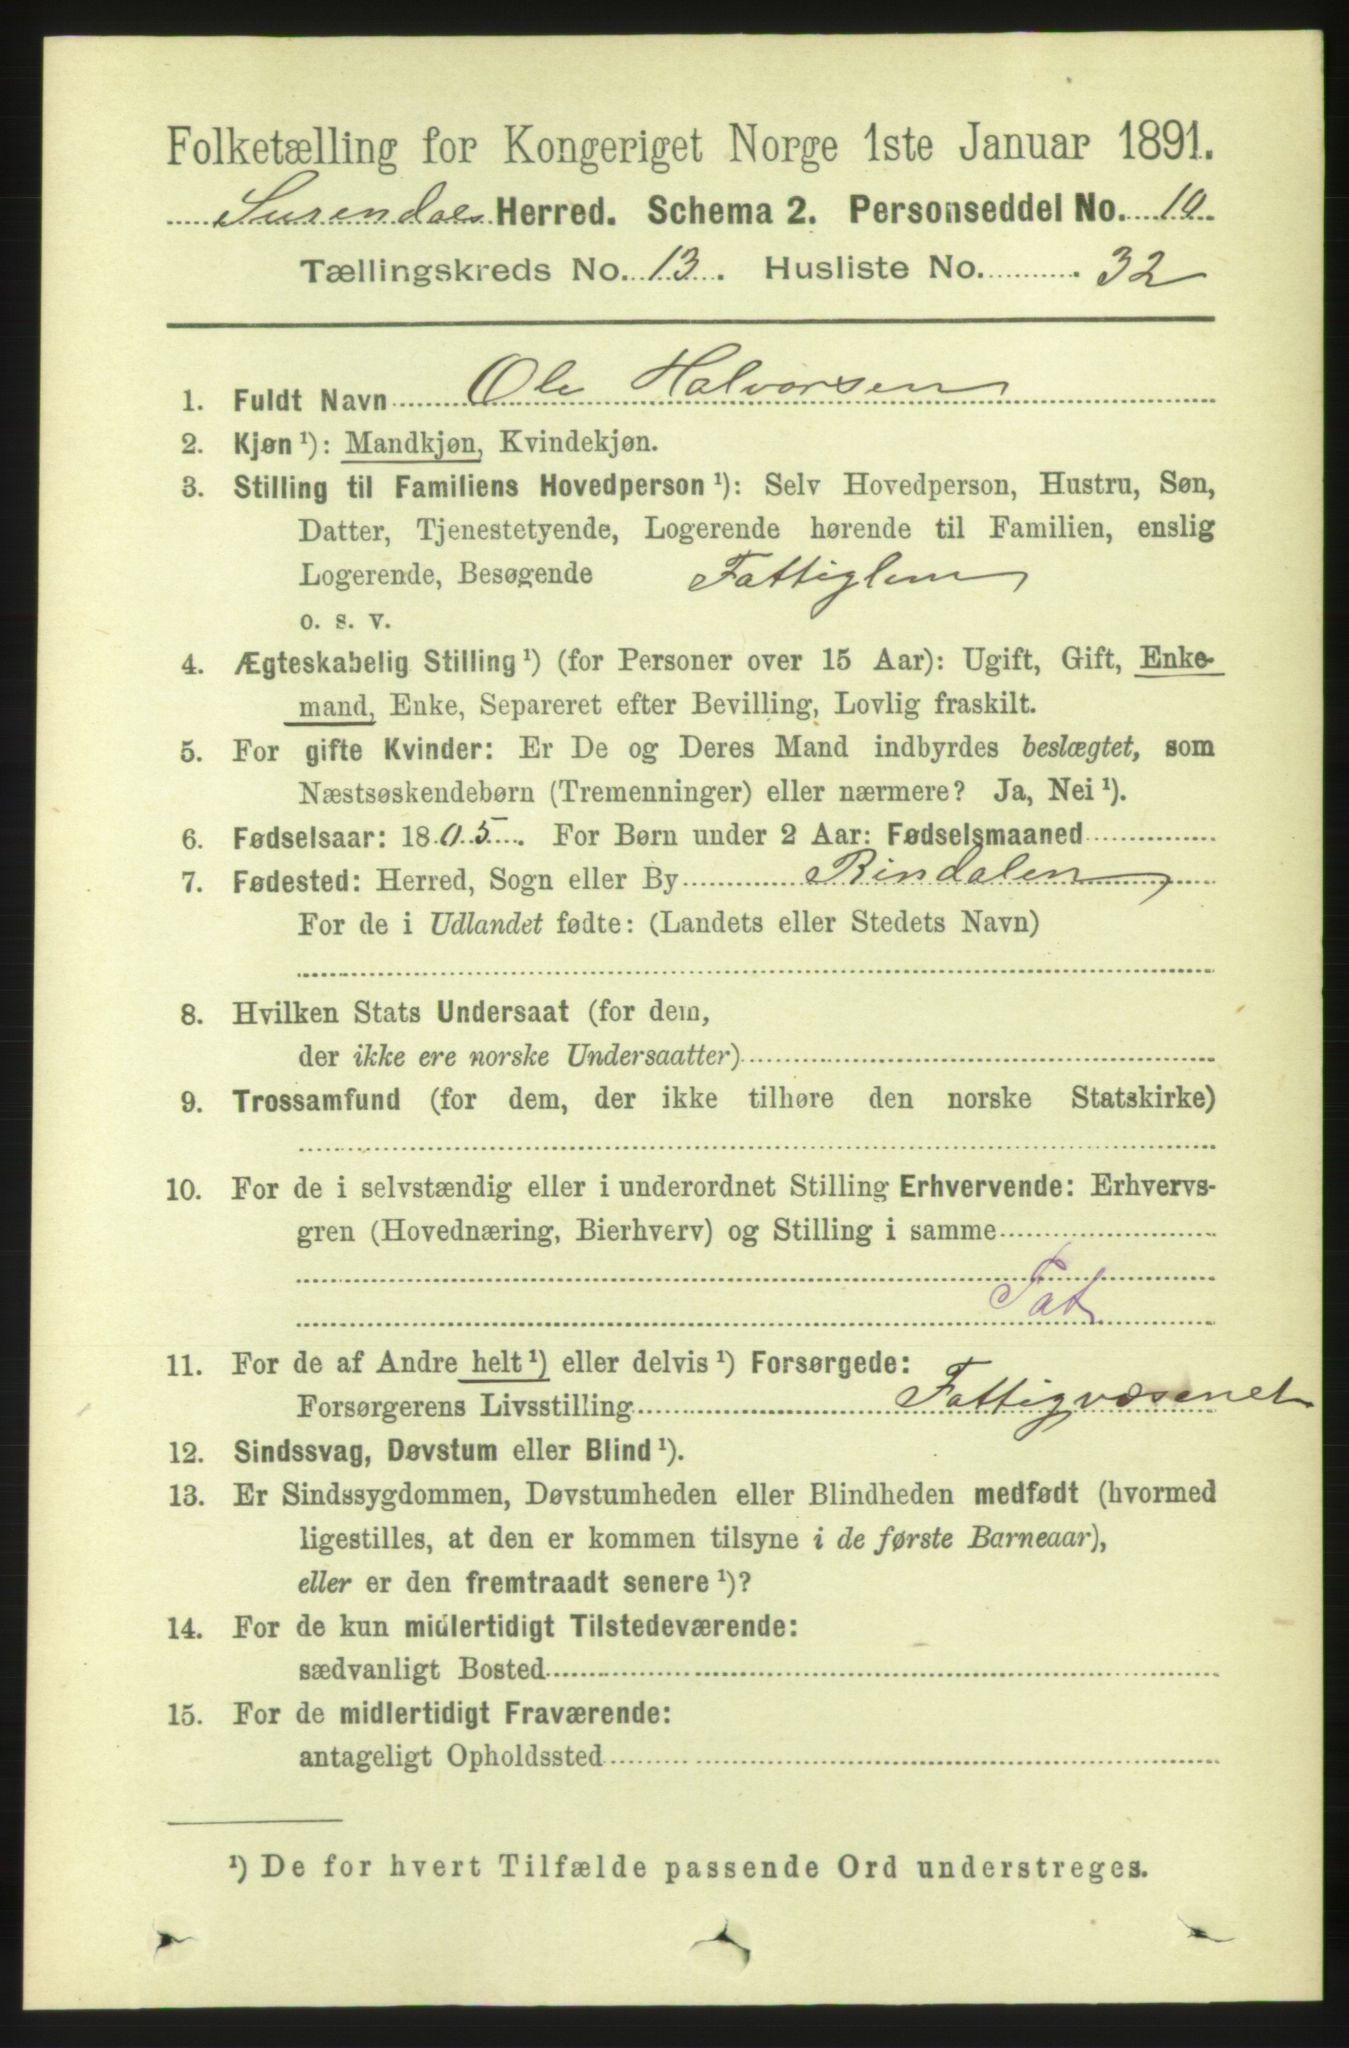 Folketælling for Kongeriget Norge 1ste Januar 1891.
Surendals Herred. Schema 2. Personseddel No. 10.
Tællingskreds No. 13. Husliste No. 32
1. Fuldt Navn Ole Halvorsen
2. Kjøn ¹): Mandkjøn, Kvindekjøn.
3. Stilling til Familiens Hovedperson ¹): Selv Hovedperson, Hustru, Søn,
Datter, Tjenestetyende, Logerende hørende til Familien, enslig
Logerende, Besøgende Fattiglem
o. s. v.
4. Ægteskabelig Stilling ¹) (for Personer over 15 Aar): Ugift, Gift, Enke-
mand, Enke, Separeret efter Bevilling, Lovlig fraskilt.
5. For gifte Kvinder: Er De og Deres Mand indbyrdes beslægtet, som
Næstsøskendebørn (Tremenninger) eller nærmere? Ja, Nei ¹).
6. Fødselsaar: 1805. For Børn under 2 Aar: Fødselsmaaned
7. Fødested: Herred, Sogn eller By Rindalen
For de i Udlandet fødte: (Landets eller Stedets Navn)
8. Hvilken Stats Undersaat (for dem,
der ikke ere norske Undersaatter)
9. Trossamfund (for dem, der ikke tilhøre den norske Statskirke)
10. For de i selvstændig eller i underordnet Stilling Erhvervende: Erhvervs-
gren (Hovednæring, Bierhverv) og Stilling i samme
Fat
11. For de af Andre helt ¹) eller delvis ¹) Forsørgede:
Forsørgerens Livsstilling Fattigvæsenet
12. Sindssvag, Døvstum eller Blind ¹).
13. Er Sindssygdommen, Døvstumheden eller Blindheden medfødt (hvormed
ligestilles, at den er kommen tilsyne i de første Barneaar),
eller er den fremtraadt senere ¹)?
14. For de kun midlertidigt Tilstedeværende:
sædvanligt Bosted
15. For de midlertidigt Fraværende:
antageligt Opholdssted
¹) De for hvert Tilfælde passende Ord understreges.